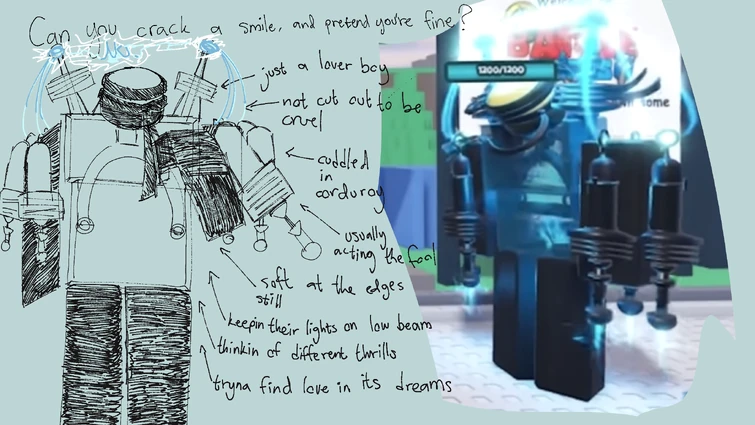 Can you crack a smile, and pretend you're fine?
No
just a lover boy
not cut out to be
cruel
cuddled
in
corduroy
usually
acting the foal
soft at the edges
still
keepin their lights on low beam
thinkin of different thrills
tryna find love in its dreams
1200/1200